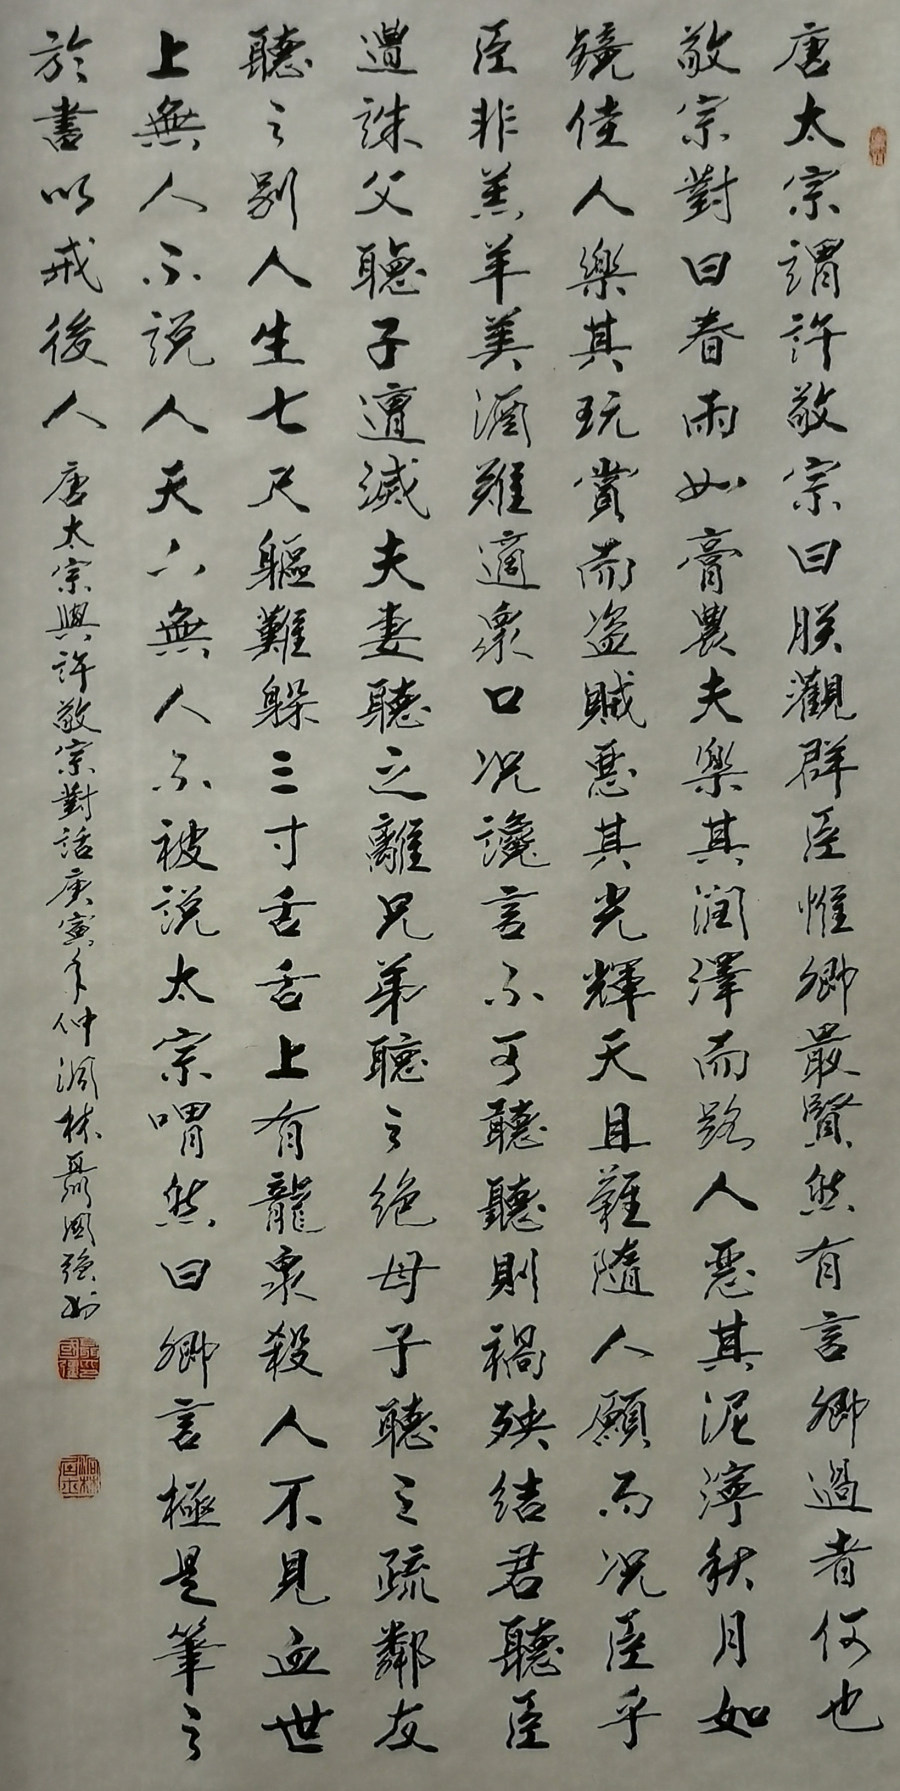 唐太宗謂許敬宗曰朕觀群臣惟卿最賢然有言卿過者何也
敬宗對曰春雨如膏農夫樂其潤澤而路人惡其泥濘秋月如
鏡佳人樂其玩賞而盗賊惡其光輝天且難隨人願而况臣乎
臣非羔羊美酒難適衆口况讒言不可聽聽則禍殃結君聽臣
遭誅父聽子遭滅夫妻聽之離兄弟聽之绝母子聽之疏鄰友
聽之别人生七尺軀難躲三寸舌舌上有龍泉殺人不見血世
上無人不説人天下無人不被説太宗喟然曰卿言極是筆之
於書以戒後人
唐太宗與許敬宗對話庚寅年仲 林聶國强